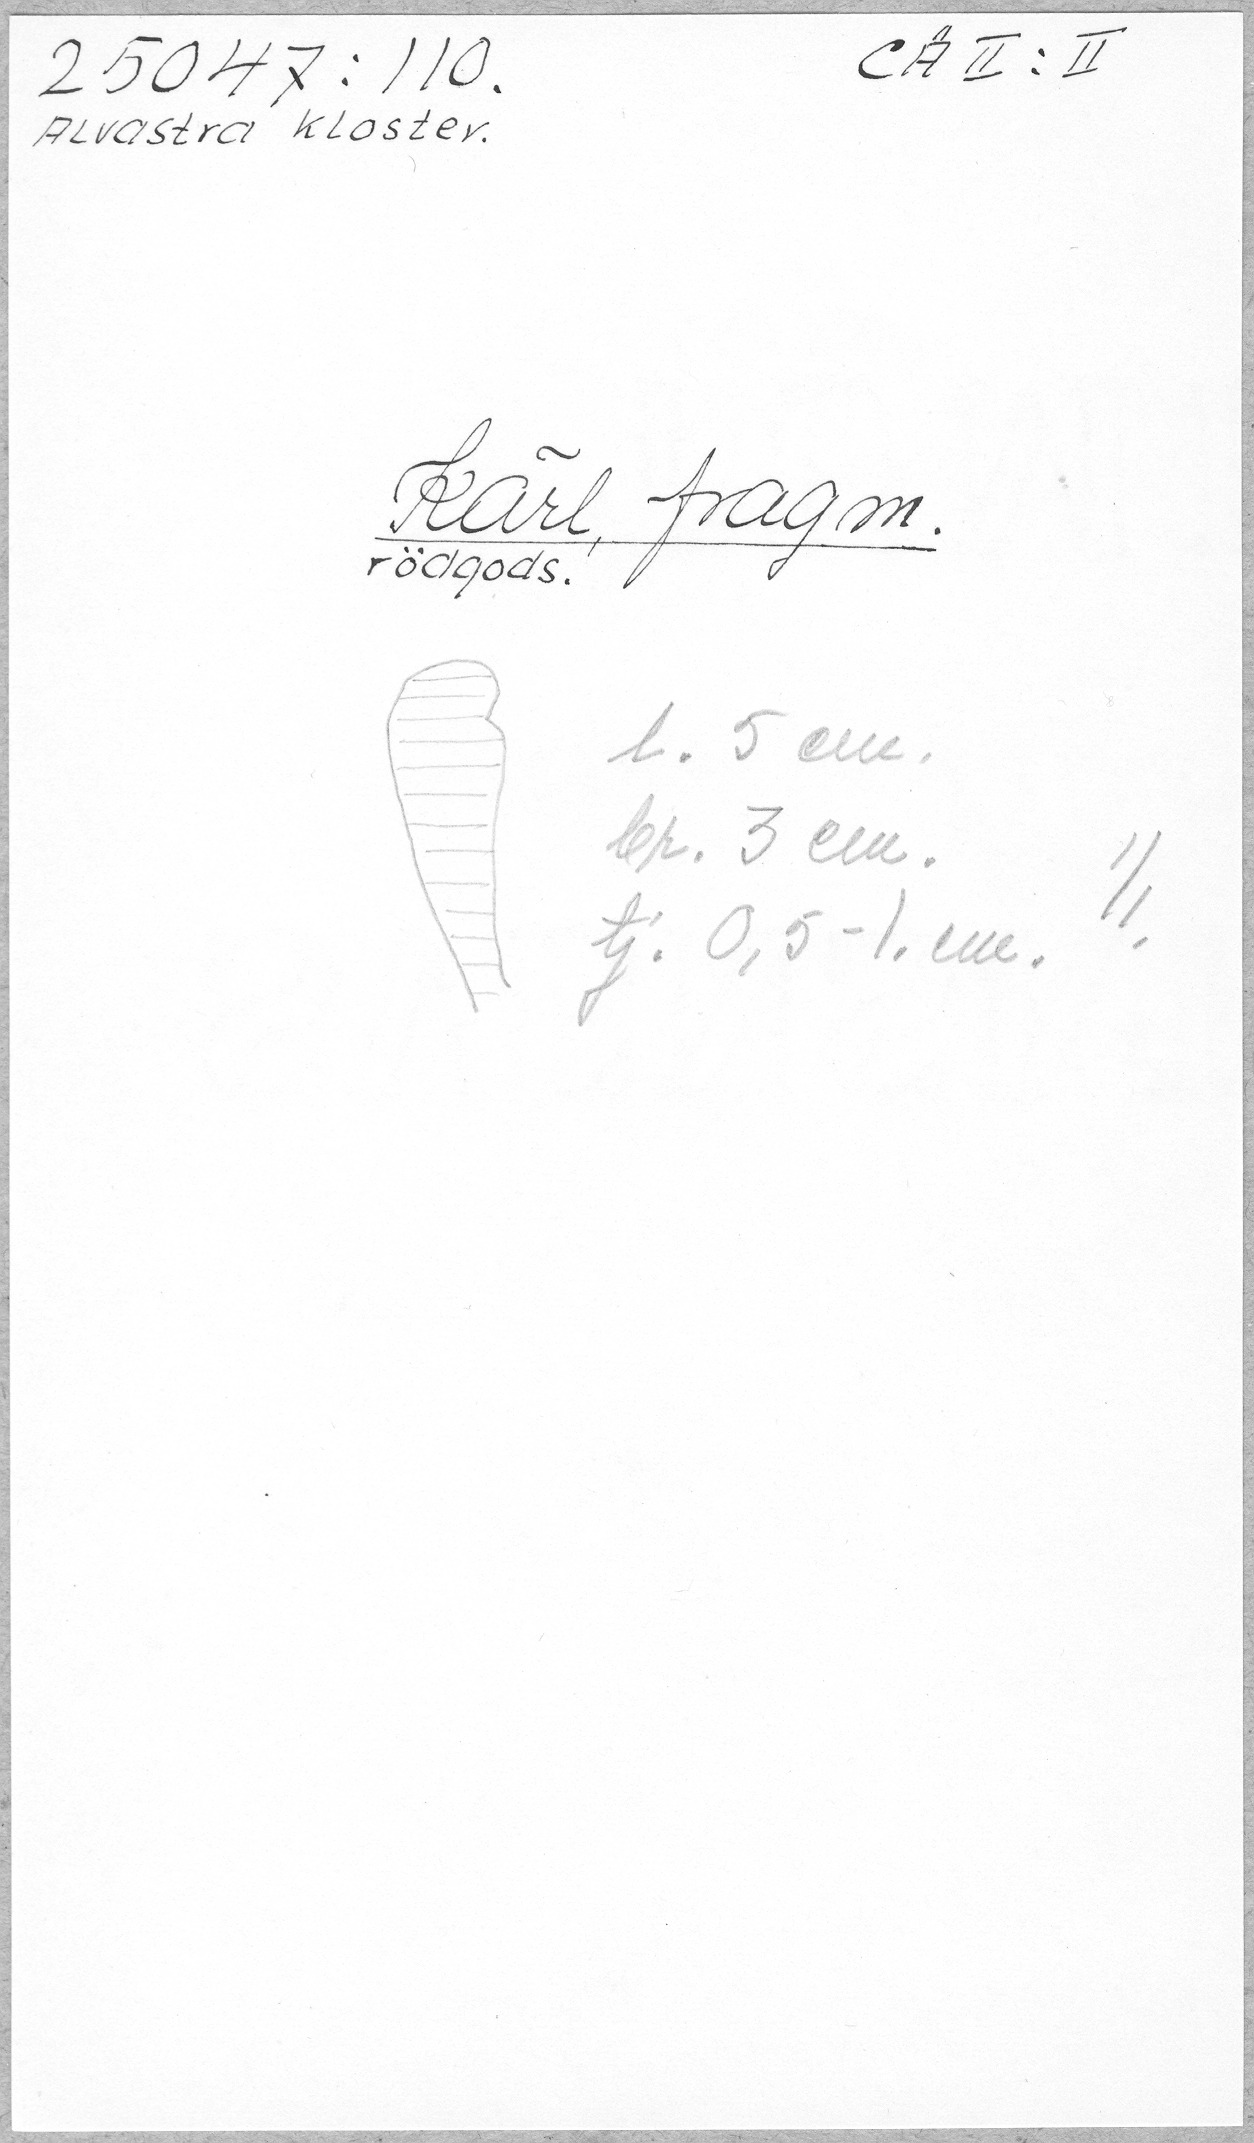 25047:110.
CÅ II:II
Alvastra kloster.
Kärl, fragm.
rödgods.
l. 5 cm.
br. 3 cm.
1/1.
tj. 0,5-1. cm.